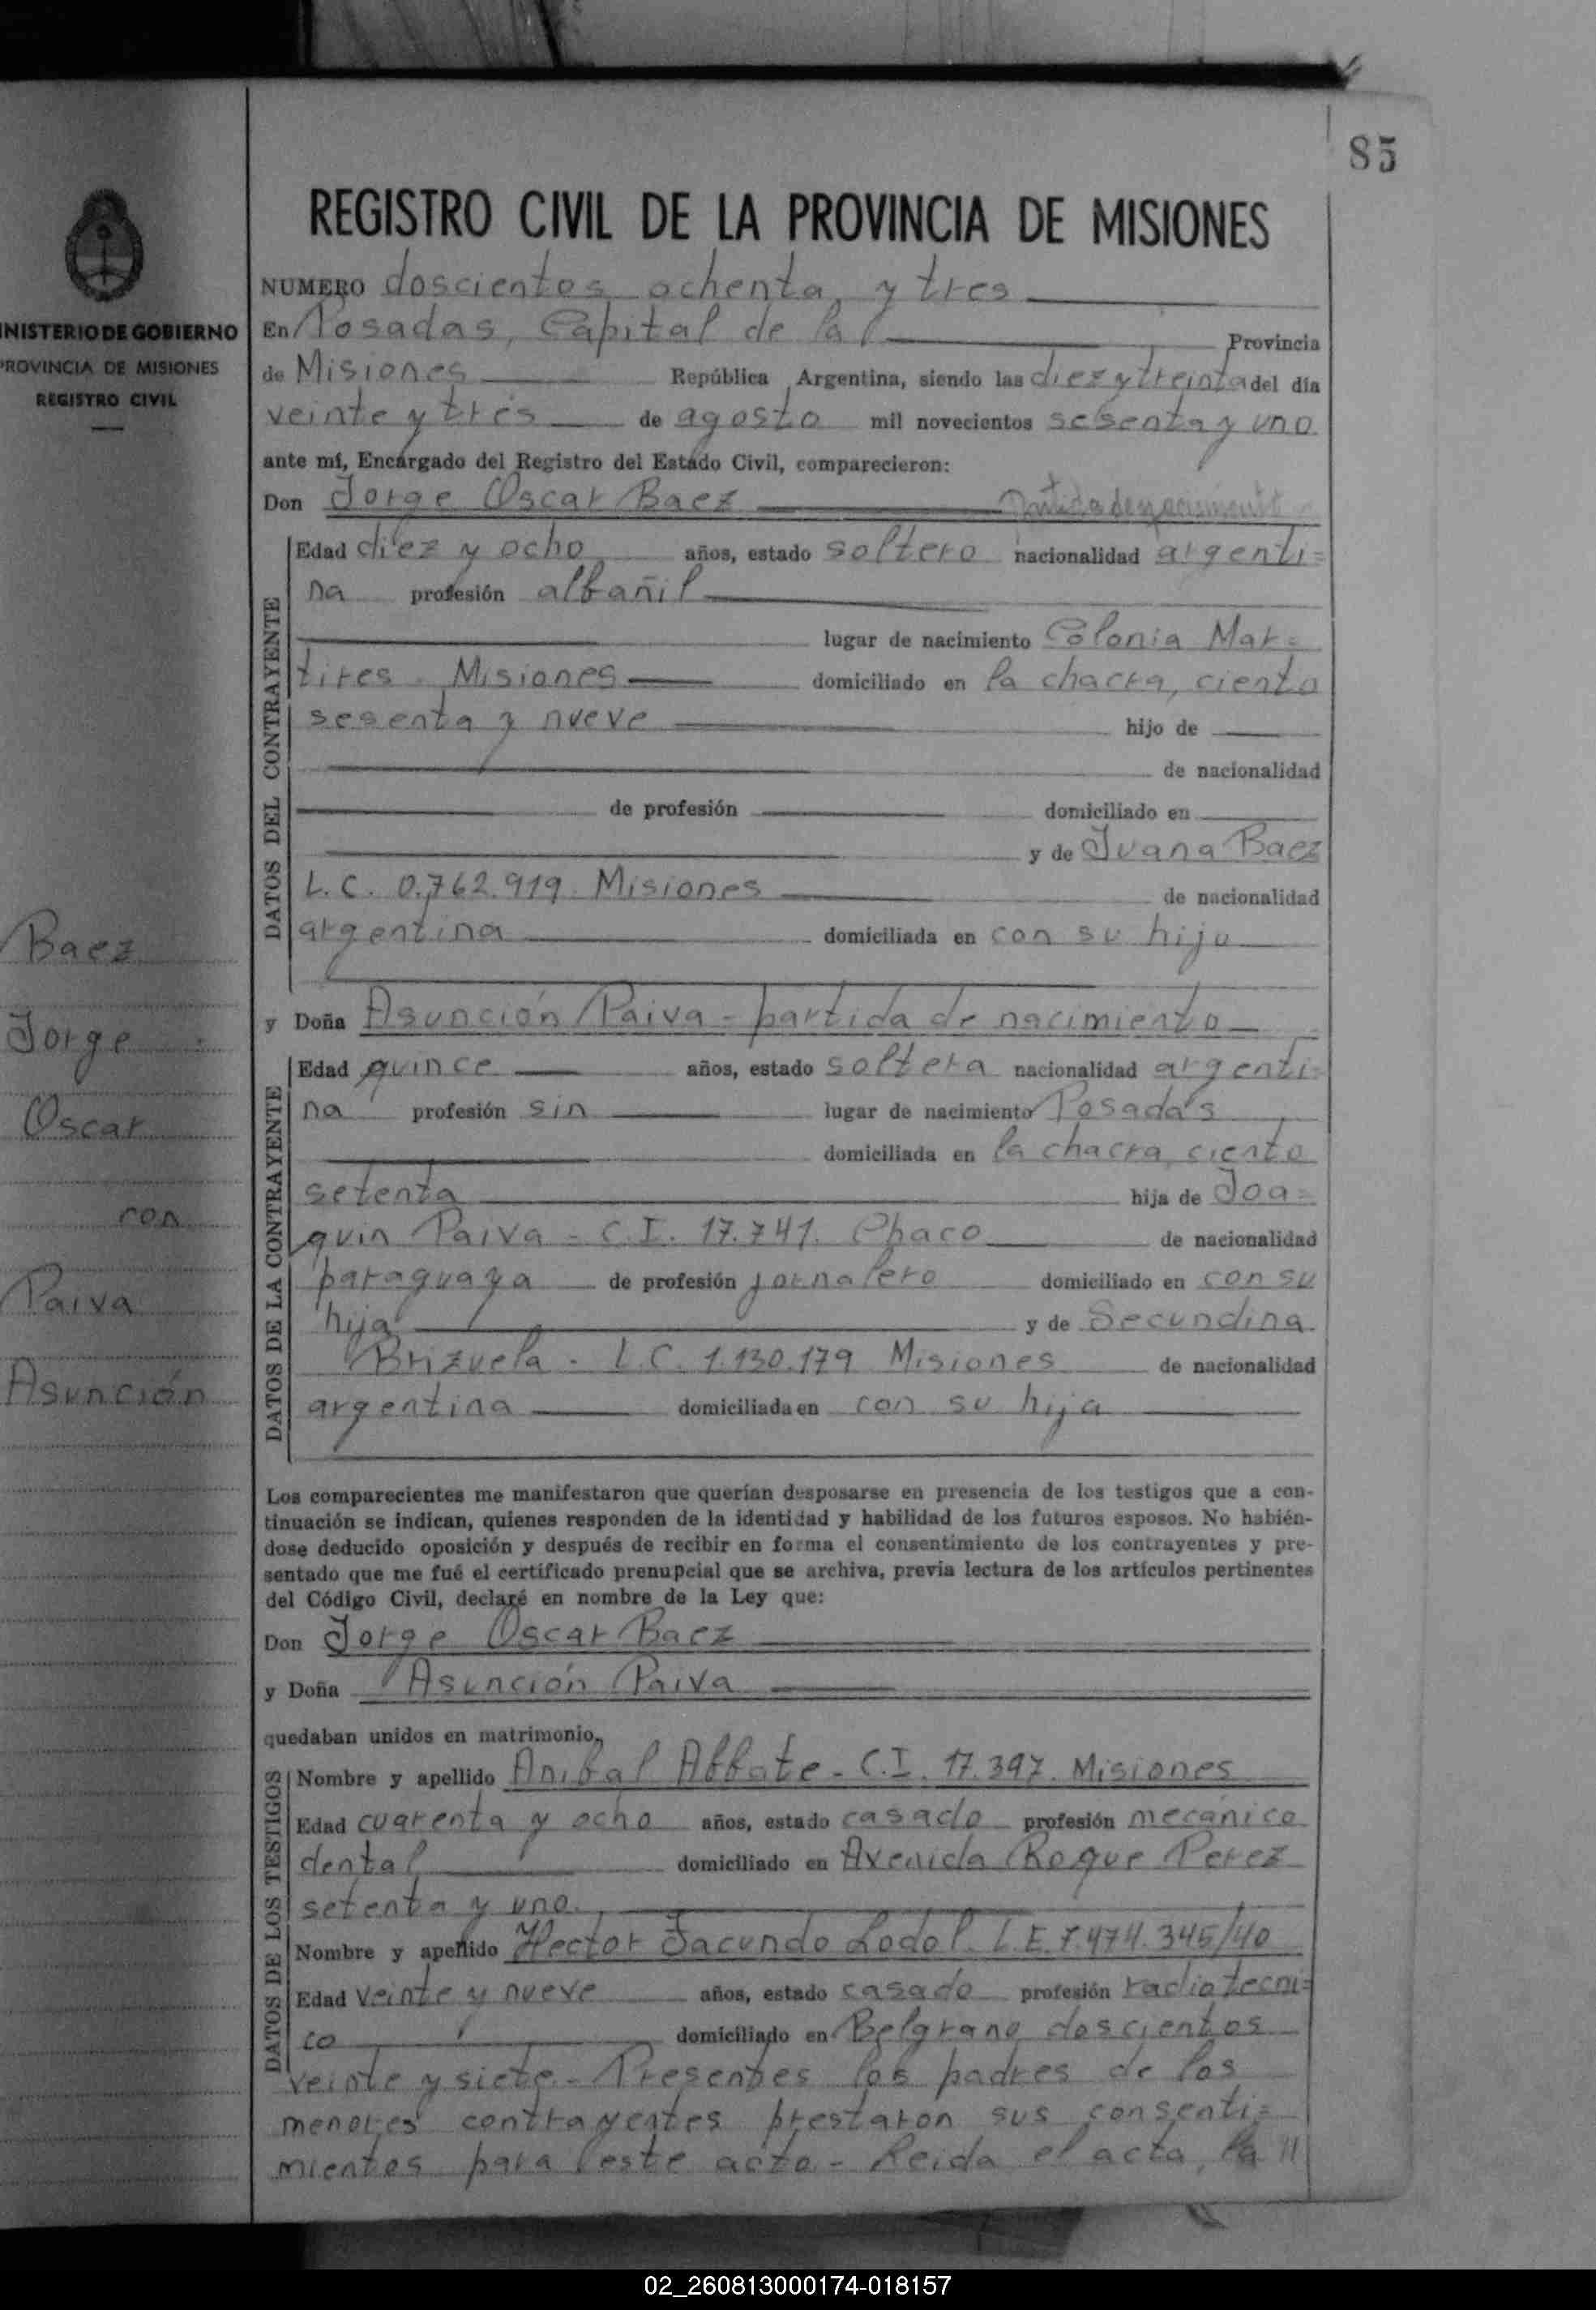 85
REGISTRO CIVIL DE LA PROVINCIA DE MISIONES
INISTERIO DE GOBIERNO
PROVINCIA DE MISIONES
REGISTRO CIVIL
Baez
Jorge
Oscar
con
Paiva
Asunción
NUMERO doscientos ochenta y tres
En Posadas, Capital de la Provincia
de Misiones República Argentina, siendo las diez y treinta del día
veinte y tres de agosto mil novecientos sesenta y uno
ante mí, Encargado del Registro del Estado Civil, comparecieron:
Don Jorge Oscar Baez partida de nacimiento
DATOS DEL CONTRAYENTE
Edad diez y ocho años, estado soltero nacionalidad argenti=
na profesión albañil
lugar de nacimiento Colonia Mar=
tires. Misiones domiciliado en la chacra, ciento
sesenta y nueve hijo de
de nacionalidad
de profesión domiciliado en
y de Juana Baez
L.C. 0.762.919. Misiones de nacionalidad
argentina domiciliada en con su hijo
y Doña Asunción Paiva - partida de nacimiento
DATOS DE LA CONTRAYENTE
Edad quince años, estado soltera nacionalidad argenti=
na profesión sin lugar de nacimiento Posadas
domiciliada en la chacra ciento
setenta hija de Joa=
quin Paiva - C.I. 17.741. Chaco de nacionalidad
paraguaya de profesión jornalero domiciliado en con su
hija y de Secundina
Brizuela - L.C. 1.130.179 Misiones de nacionalidad
argentina domiciliada en con su hija
Los comparecientes me manifestaron que querían desposarse en presencia de los testigos que a con-
tinuación se indican, quienes responden de la identidad y habilidad de los futuros esposos. No habién-
dose deducido oposición y después de recibir en forma el consentimiento de los contrayentes y pre-
sentado que me fué el certificado prenupcial que se archiva, previa lectura de los artículos pertinentes
del Código Civil, declaré en nombre de la Ley que:
Don Jorge Oscar Baez
y Doña Asunción Paiva
quedaban unidos en matrimonio,
DATOS DE LOS TESTIGOS
Nombre y apellido Anibal Abbate - C.I. 17.397. Misiones
Edad cuarenta y ocho años, estado casado profesión mecánico
dental domiciliado en Avenida Roque Perez
setenta y uno.
Nombre y apellido Hector Facundo Lodol. L.E. 7.474.345/40
Edad veinte y nueve años, estado casado profesión radiotecni=
co domiciliado en Belgrano doscientos
veinte y siete - Presentes los padres de los
menores contrayentes prestaron sus consenti=
mientos para este acto - Leida el acta, la //
02_260813000174-018157